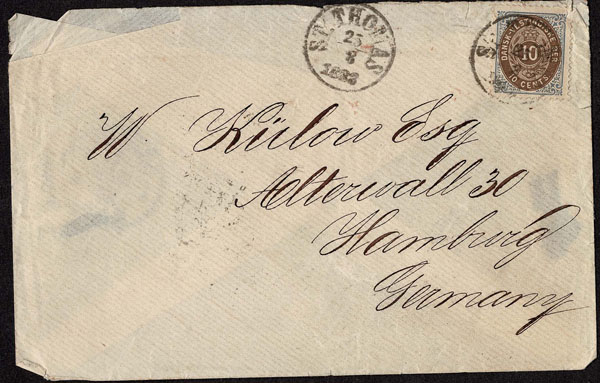 ST. THOMAS
25
8
DANSK-VESTINDISKE ØER
10
10 CENTS
W Külow Esq
Alterwall 30
Hamburg
Germany